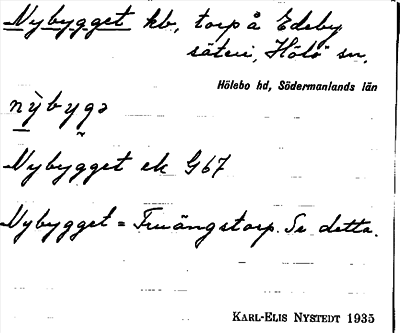 Nybygget kb, torp å Edeby
säteri, Hölö sn.
Hölebo hd, Södermanlands län
nỳbygə
Nybygget ek G67
Nybygget = Fruängstorp. Se detta.
KARL-ELIS NYSTEDT 1935